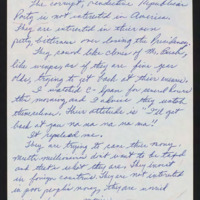 The corrupt, vindictive Republican
Party is not interested in America.
They are interested in their own
petty bitterness over losing the Presidency.
They sound like clones of Mr. Bush,
like weepers as if they are five year
olds, trying to get back at their enemies.
I watched C-Span for several hours
this morning and I advise they watch
themselves. Their attitude is "I'd get
back at you na na na na na!!"
It repelled me.
They are trying to save their money.
Multi-millionaires don't want to be taxed
and that's what they are. They invest
in foreign countries. They are not interested
in poor people's money, they are